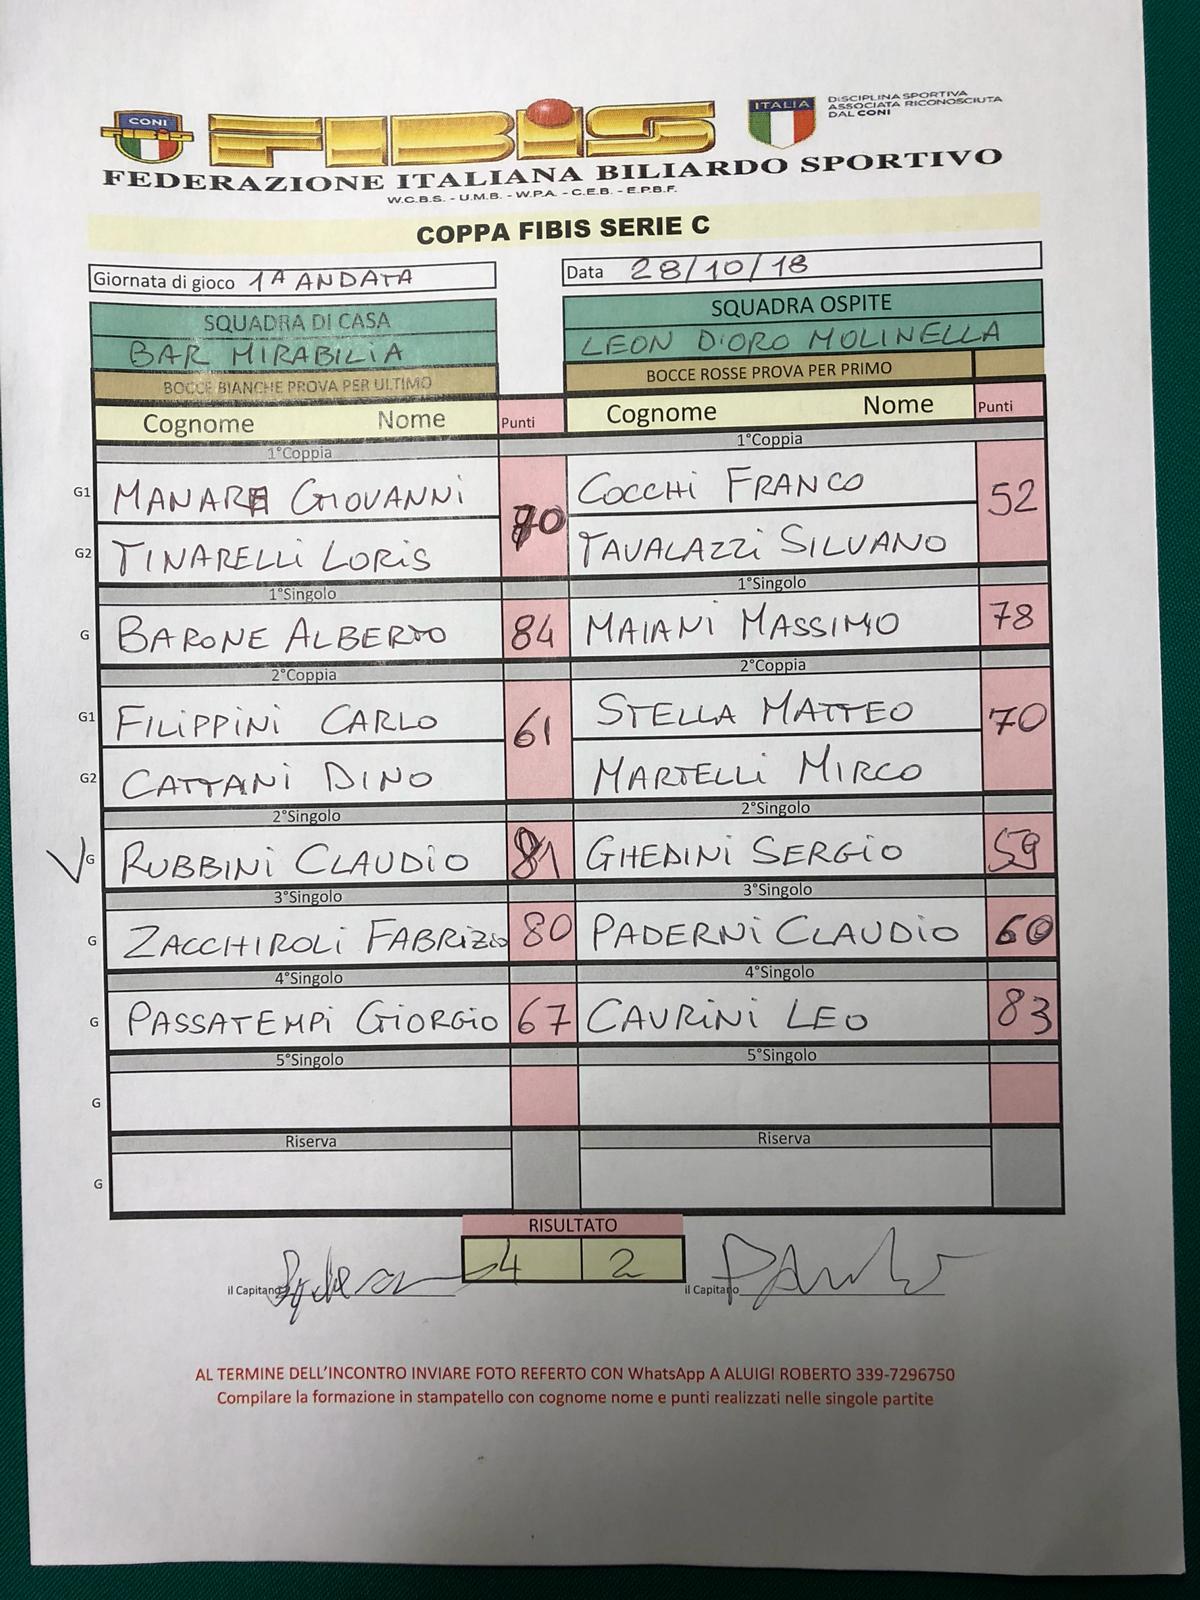 CONI
FIBIS
FIBIS
ITALIA
DISCIPLINA SPORTIVA
ASSOCIATA RICONOSCIUTA
DAL CONI
FEDERAZIONE ITALIANA BILIARDO SPORTIVO
W.C.B.S. - U.M.B. - W.P.A. - C.E.B. - E.P.B.F.
COPPA FIBIS SERIE C
Giornata di gioco 1A ANDATA Data 28/10/18
SQUADRA DI CASA SQUADRA OSPITE
BAR MIRABILIA LEON D'ORO MOLINELLA
BOCCE BIANCHE PROVA PER ULTIMO BOCCE ROSSE PROVA PER PRIMO
Cognome Nome Punti Cognome Nome Punti
1°Coppia 1°Coppia
G1 GIOVANNI COCCHI FRANCO 52
70
G2 TINARELLI LORIS TAVALAZZI SILVANO
1°Singolo 1°Singolo
G BARONE ALBERTO 84 MAIANI MASSIMO 78
2°Coppia 2°Coppia
G1 FILIPPINI CARLO 61 STELLA MATTEO 70
G2 CATTANI DINO MARTELLI MIRCO
2°Singolo 2°Singolo
G RUBBINI CLAUDIO 81 GHEDINI SERGIO 59
3°Singolo 3°Singolo
G ZACCHIROLI FABRIZIO 80 PADERNI CLAUDIO 60
4°Singolo 4°Singolo
G PASSATEMPI GIORGIO 67 CAVRINI LEO 83
5°Singolo 5°Singolo
G
Riserva Riserva
G
RISULTATO
4 2
il Capitano il Capitano
AL TERMINE DELL'INCONTRO INVIARE FOTO REFERTO CON WhatsApp A ALUIGI ROBERTO 339-7296750
Compilare la formazione in stampatello con cognome nome e punti realizzati nelle singole partite